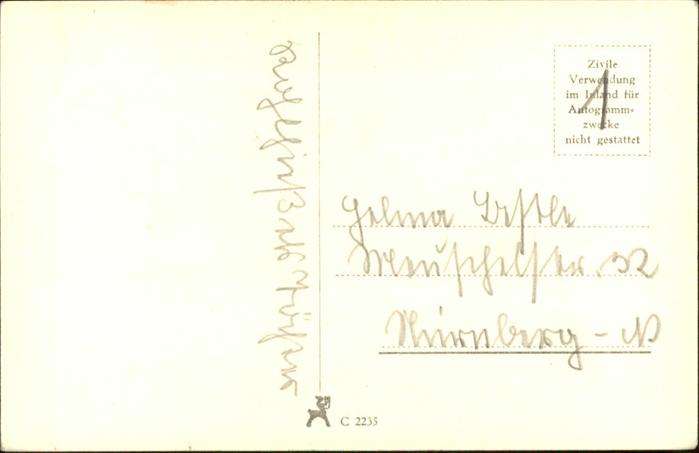 Zivile
Verwendung
im Inland für
Autogramm-
zwecke
nicht gestattet
1
Helma Bestle
Meuschelstr. 32
Nürnberg - N
C 2235